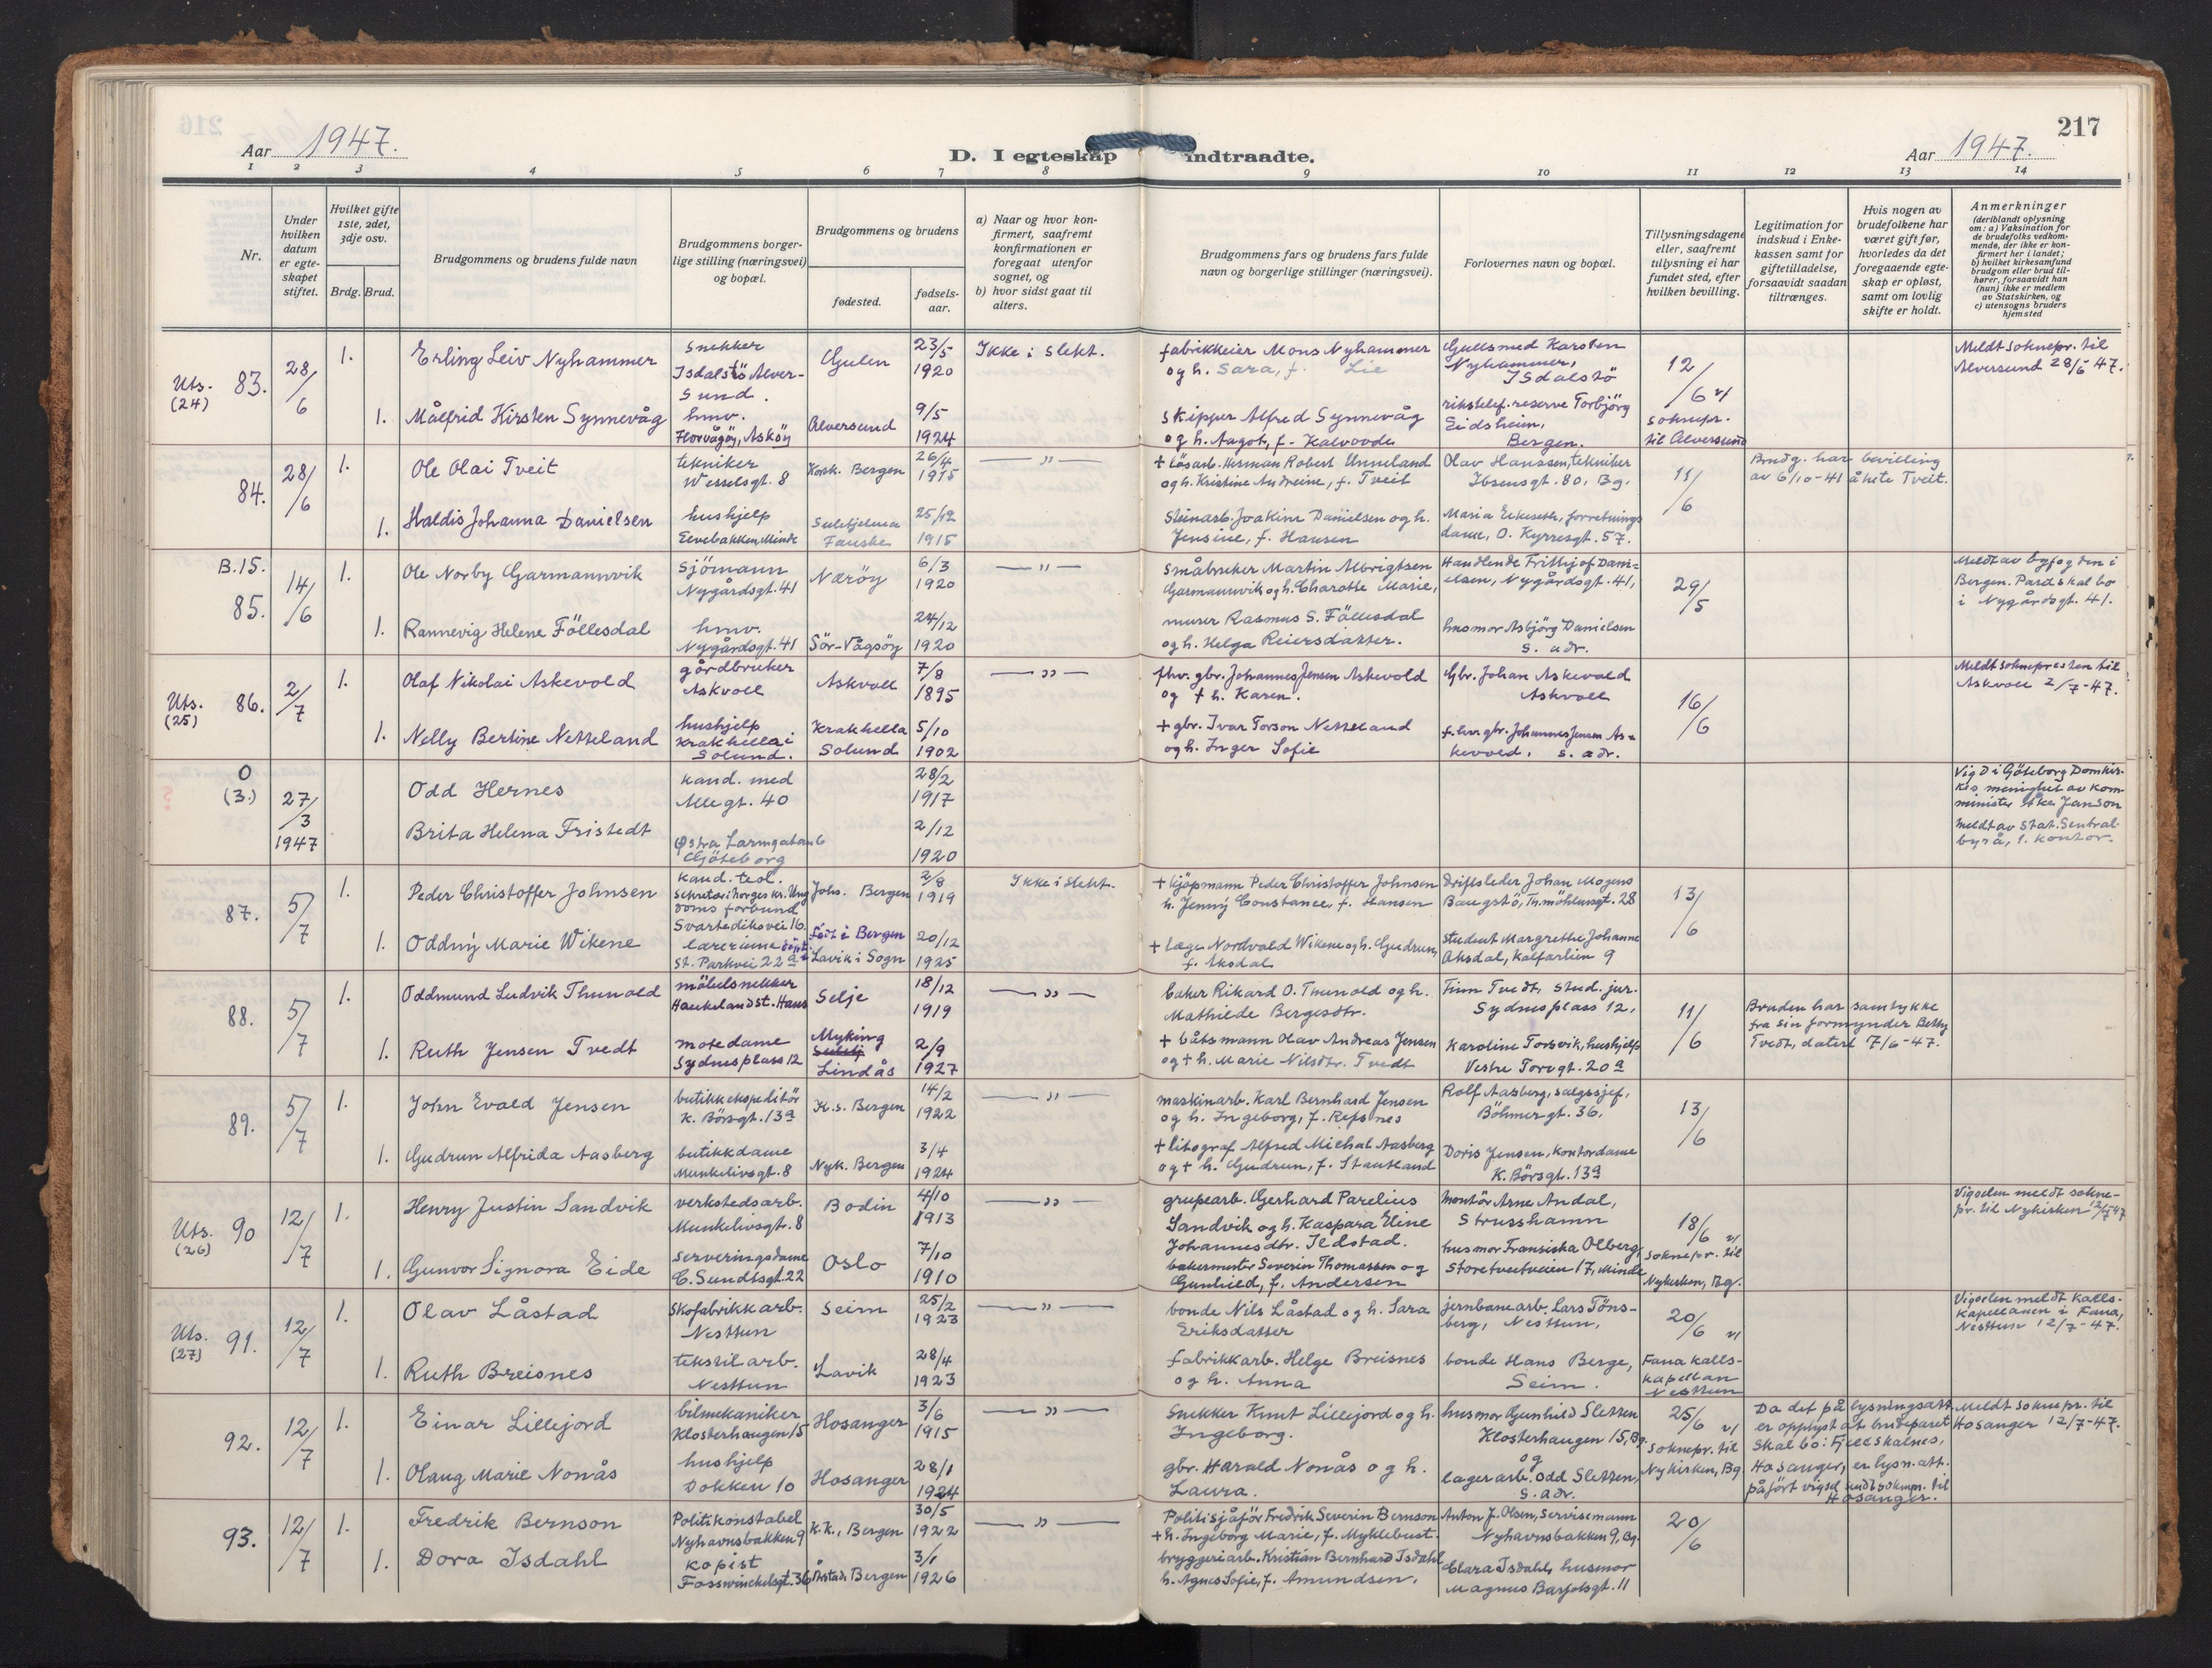 216
Aar 1947.
D. I egteskap indtraadte.
Aar 1947.
217
1 2 3 4 5 6 7 8 9 10 11 12 13 14
Nr.
Under hvilken datum er egteskapet stiftet.
Hvilket gifte 1ste, 2det, 3dje osv.
Brdg. Brud.
Brudgommens og brudens fulde navn
Brudgommens borgerlige stilling (næringsvei) og bopæl.
Brudgommens og brudens
fødested.
fødselsaar.
a) Naar og hvor konfirmert, saafremt konfirmationen er foregaat utenfor sognet, og
b) hvor sidst gaat til alters.
Brudgommens fars og brudens fars fulde navn og borgerlige stillinger (næringsvei).
Forlovernes navn og bopæl.
Tillysningsdagene eller, saafremt tillysning ei har fundet sted, efter hvilken bevilling.
Legitimation for indskud i Enkekassen samt for giftetilladelse, forsaavidt saadan tiltrænges.
Hvis nogen av brudefolkene har været gift før, hvorledes da det foregaaende egteskap er opløst, samt om lovlig skifte er holdt.
Anmerkninger
(deriblandt oplysning om: a) Vaksination for de brudefolks vedkommende, der ikke er konfirmert her i landet; b) hvilket kirkesamfund brudgom eller brud tilhører, forsaavidt han (hun) ikke er medlem av Statskirken, og c) utensogns bruders hjemsted
Uts. (24) 83. 28/6 1. Erling Leiv Nyhammer snekker Isdalstö Alversund. Gulen 23/5 1920 Ikke i slekt. fabrikkeier Mons Nyhammer og h. Sara, f. Lie Gullsmed Karsten Nyhammer, Isdalstö 12/6 v/ soknepr. til Alversund Meldt soknepr. til Alversund 28/6 47.
1. Målfrid Kirsten Synnevåg hmv. Florvågöy, Asköy Alversund 9/5 1924 skipper Alfred Synnevåg og h. Aagot, f. Kalvodde rikstelef. reserve Torbjörg Eidsheim, Bergen.
84. 28/6 1. Ole Olai Tveit tekniker Wesselsgt. 8 Kork. Bergen 26/4 1915 —"— + Løsarb. Herman Robert Unneland og h. Kristine Andreine, f. Tveit Olav Hanssen, tekniker Ibsensgt. 80, Bg. 11/6 Brudg. har bevilling av 6/10-41 å hete Tveit.
1. Haldis Johanna Danielsen hushjelp Eevebakken, Minde Sulitjelma Fauske 25/12 1915 Steinarb. Joakim Danielsen og h. Jensine, f. Hansen Maria Eikeseth, forretningsdame, O. Kyrresgt. 57.
B.15. 85. 14/6 1. Ole Norby Garmannvik sjömann Nygårdsgt. 41 Nærøy 6/3 1920 —"— småbruker Martin Albrigtsen Garmannvik og h. Charotte Marie, Handlende Frithjof Danielsen, Nygårdsgt. 41, 29/5 Meldt av byfogden i Bergen. Paret skal bo i Nygårdsgt. 41.
1. Rannevig Helene Föllesdal hmv. Nygårdsgt. 41 Sör-Vågsöy 24/12 1920 murer Rasmus S. Föllesdal og h. Helga Reiersdatter. husmor Asbjörg Danielsen s. adr.
Uts. (25) 86. 2/7 1. Olaf Nikolai Askevold gårdbruker Askvoll Askvoll 7/8 1895 —"— fhv. gbr. Johannes Jensen Askevold og + h. Karen. Gbr. Johan Askevold Askvoll 16/6 Meldt soknepresten til Askvoll 2/7-47.
1. Nelly Bertine Netteland hushjelp Krakhella i Solund. Krakhella Solund 5/10 1902 + gbr. Ivar Torson Netteland og h. Inger Sofie f. hv. gbr. Johannes Jensen Askevold, s. adr.
0 (3.) 27/3 1947 Odd Hernes kand. med Allegt. 40 28/2 1917 Vigd i Göteborg Domkirkes menighet av komminister Åke Janson Meldt av Stat. Sentralbyrå, 1. kontor.
Brita Helena Fristedt Østra Larmgatan 6 Göteborg 2/12 1920
87. 5/7 1. Peder Christoffer Johnsen kand. teol. sekretær i Norges kr. Ungdoms forbund Svartediksvei 16. Johs. Bergen 2/8 1919 Ikke i slekt. + kjøpmann Peder Christoffer Johnsen h. Jenny Constance, f. Hansen Driftsleder Johan Mogens Baugstö, Th. möhlensgt. 28 13/6
1. Oddny Marie Wikene lærerinne St. Parkvei 22a født i Bergen döpt i Lavik i Sogn 20/12 1925 + Læge Nordvald Wikene og h. Gudrun, f. Aksdal student Margrethe Johanne Aksdal, Kalfarlien 9
88. 5/7 1. Oddmund Ludvik Thunold möbelsnekker Haukeland st. Haus Selje 18/12 1919 —"— baker Rikard O. Thunold og h. Mathilde Bergesdtr. Finn Tvedt, stud. jur. Sydnesplass 12, 11/6 Bruden har samtykke fra sin formynder Betty Tvedt, datert 7/6-47.
1. Ruth Jensen Tvedt motedame Sydnesplass 12 Myking Lindås 2/9 1927 + båtsmann Olav Andreas Jensen og + h. Marie Nilsdtr. Tvedt Karoline Torsvik, hushjelp Vestre Torvgt. 20a
89. 5/7 1. John Evald Jensen butikkekspeditör K. Börsgt. 13a K.s. Bergen 14/2 1922 —"— maskinarb. Karl Bernhard Jensen og h. Ingeborg, f. Refsnes Rolf Aasberg, salgssjef, Böhmergt. 36, 13/6
1. Gudrun Alfrida Aasberg butikkdame Munkelivsgt. 8 Nyk. Bergen 3/4 1924 + litograf Alfred Michal Aasberg og + h. Gudrun, f. Stautland Doris Jensen, kontordame K. Börsgt. 13a
Uts. (26) 90 12/7 1. Henry Justin Sandvik verkstedsarb. Munkelivsgt. 8 Bodin 4/10 1913 —"— grubearb. Gerhard Parelius Sandvik og h. Kaspara Eline Johannesdtr. Ildstad. Montör Arne Andal, Strusshamn 18/6 v/ soknepr. til Nykirken, Bg. Vigselen meldt soknepr. til Nykirken 12/7 47
1. Gunvor Signora Eide serveringsdame C. Sundtsgt. 22 Oslo 7/10 1910 bakermester Severin Thomassen og Gunhild, f. Andersen husmor Fransiska Olberg, Storetveitveien 17, Minde
Uts. (27) 91. 12/7 1. Olav Låstad skofabrikkarb. Nesttun Seim 25/2 1923 —"— bonde Nils Låstad og h. Sara Eriksdatter jernbanearb. Lars Tönsberg, Nesttun, 20/6 v/ Fana kallskapellan Nesttun Vigselen meldt kallskapellanen i Fana, Nesttun 12/7-47.
1. Ruth Breisnes tekstilarb. Nesttun Lavik 28/4 1923 fabrikkarb. Helge Breisnes og h. Anna bonde Hans Berge, Seim.
92. 12/7 1. Einar Lillejord bilmekaniker Klosterhaugen 15 Hosanger 3/6 1915 —"— Snekker Knut Lillejord og h. Ingeborg. husmor Gunhild Sletten Klosterhaugen 15, Bg. og 25/6 v/ soknepr. til Nykirken, Bg. Da det på lysningsatt. er opplyst at brudeparet skal bo i Fjellskalnes, Hosanger, er lysn. att. påført vigsel sendt soknepr. til Hosanger. Meldt soknepr. til Hosanger 12/7-47.
1. Olaug Marie Nonås hushjelp Dokken 10 Hosanger 28/1 1924 gbr. Harald Nonås og h. Laura. lagerarb. Odd Sletten, s. adr.
93. 12/7 1. Fredrik Bernson Politikonstabel Nyhavnsbakken 9 k.k., Bergen 30/5 1922 —"— Politisjåför Fredrik Severin Bernson + h. Ingeborg Marie, f. Myklebust. Anton J. Olsen, servisemann Nyhavnsbakken 9, Bg. 20/6
1. Dora Isdahl kopist Fosswinckelsgt. 36 Årstad, Bergen 3/1 1926 bryggeriarb. Kristian Bernhard Isdahl h. Agnes Sofie, f. Amundsen. Clara Isdahl, husmor Magnus Barfotsgt. 11